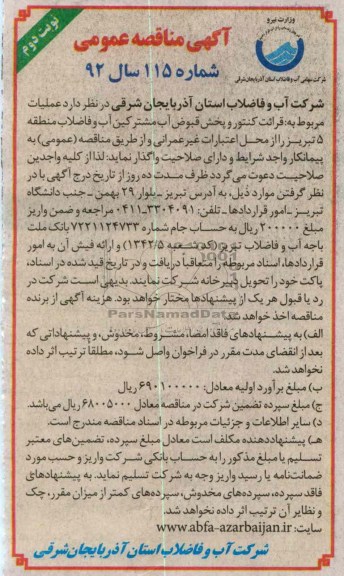 نوبت دوم
وزارت نیرو
شرکت سهامی آب و فاضلاب استان آذربایجان شرقی
آگهی مناقصه عمومی
شماره ۱۱۵ سال ۹۲
شرکت آب و فاضلاب استان آذربایجان شرقی در نظر دارد عملیات
مربوط به: قرائت کنتور و پخش قبوض آب مشترکین آب و فاضلاب منطقه
۵ تبریز را از محل اعتبارات غیرعمرانی و از طریق مناقصه (عمومی) به
پیمانکار واجد شرایط و دارای صلاحیت واگذار نماید: لذا از کلیه واجدین
صلاحیت دعوت می‌گردد ظرف مدت ده روز از تاریخ درج آگهی با در
نظر گرفتن موارد ذیل، به آدرس تبریز ـ بلوار ۲۹ بهمن ـ جنب دانشگاه
تبریز ـ امور قراردادها ـ تلفن: ۳۳۰۴۰۹۱-۰۴۱۱ مراجعه و ضمن واریز
مبلغ ۲۰۰۰۰۰ ریال به حساب جام شماره ۷۲۲۱۱۲۴۷۳۳ بانک ملت
باجه آب و فاضلاب تبریز (کد شعبه ۱۳۴۲/۵) و ارائه فیش آن به امور
قراردادها، اسناد مربوطه را متعاقباً دریافت و در تاریخ قید شده در اسناد،
پاکت خود را تحویل دبیرخانه شرکت نمایند. بدیهی است شرکت در
رد یا قبول هر یک از پیشنهادها مختار خواهد بود. هزینه آگهی از برنده
مناقصه اخذ خواهد شد.
ParsNamadData
الف) به پیشنهادهای فاقد امضا، مشروط، مخدوش، و پیشنهاداتی که
بعد از انقضای مدت مقرر در فراخوان واصل شود، مطلقاً ترتیب اثر داده
نخواهد شد.
ب) مبلغ برآورد اولیه معادل: ۶۹۰۱۰۰۰۰۰ ریال
ج) مبلغ سپرده تضمین شرکت در مناقصه معادل ۶۸۰۰۵۰۰۰ ریال می‌باشد.
د) سایر اطلاعات و جزئیات مربوطه در اسناد مناقصه مندرج است.
هـ) پیشنهاددهنده مکلف است معادل مبلغ سپرده، تضمین‌های معتبر
تسلیم یا مبلغ مذکور را به حساب بانکی شرکت واریز و حسب مورد
ضمانت‌نامه یا رسید واریز وجه به شرکت تسلیم نماید. به پیشنهادهای
فاقد سپرده، سپرده‌های مخدوش، سپرده‌های کمتر از میزان مقرر، چک
و نظایر آن ترتیب اثر داده نخواهد شد.
سایت: www.abfa-azarbaijan.ir
شرکت آب و فاضلاب استان آذربایجان شرقی